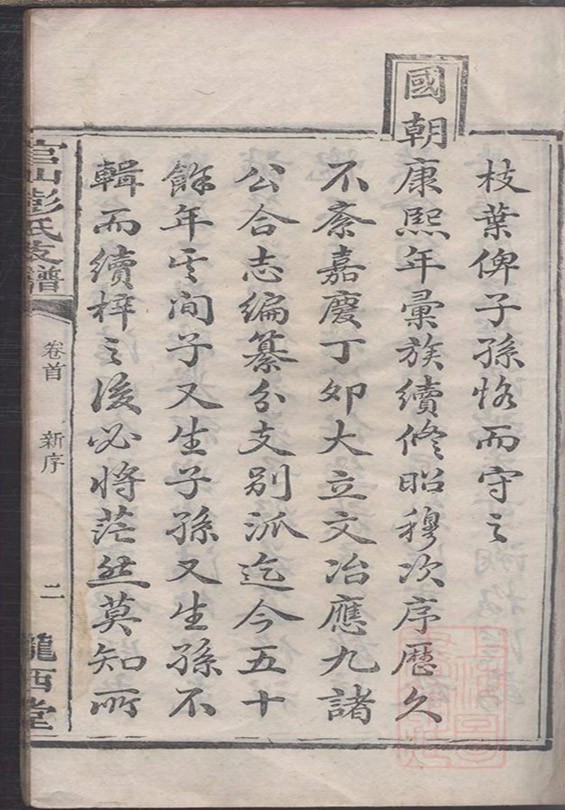 枝葉俾子孫恪而守之
國朝康熙年彙族續修昭穆次序歷久
不紊嘉慶丁卯大立文冶應九諸
公合志編纂分支別派迄今五十
餘年其间子又生子孫又生孫不
輯而續梓之後必將茫然莫知所
官山彭氏支譜
卷首 新序 二
隴西堂